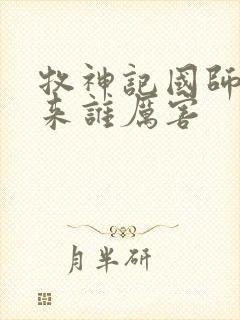 牧神記國師
来誰厲害
月半研